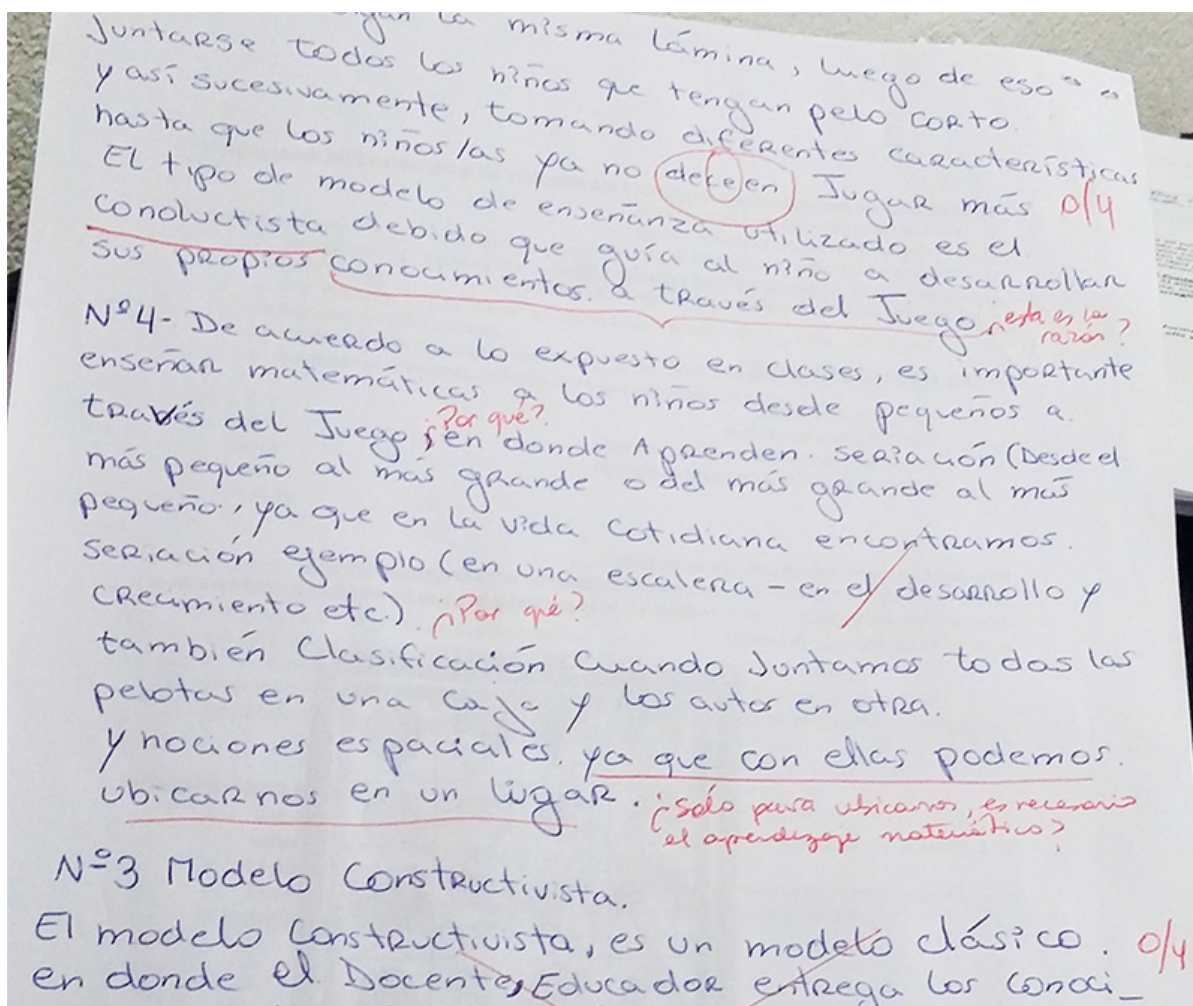 la misma lámina, luego de eso
Juntarse todos los niños que tengan pelo corto
y así sucesivamente, tomando diferentes características
hasta que los niños/as ya no deceen Jugar más 0/4
El tipo de modelo de enseñanza utilizado es el
conductista debido que guía al niño a desarrollar
sus propios conocimientos. a través del Juego ¿esta es la razón?
Nº4- De acuerdo a lo expuesto en clases, es importante
enseñar matemáticas a los niños desde pequeños a
través del Juego, ¿Por qué? en donde Aprenden. seriación (Desde el
más pequeño al más grande o del más grande al más
pequeño, ya que en la vida cotidiana encontramos.
seriación ejemplo (en una escalera - en el desarrollo y
crecimiento etc.) ¿Por qué?
también Clasificación Cuando Juntamos todas las
pelotas en una caja y los autos en otra.
y nociones espaciales. ya que con ellas podemos.
ubicarnos en un lugar. ¿solo para ubicarnos, es necesario
el aprendizaje matemático?
Nº3 Modelo Constructivista.
El modelo Constructivista, es un modelo clásico. 0/4
en donde el Docente, Educador entrega los conoci-